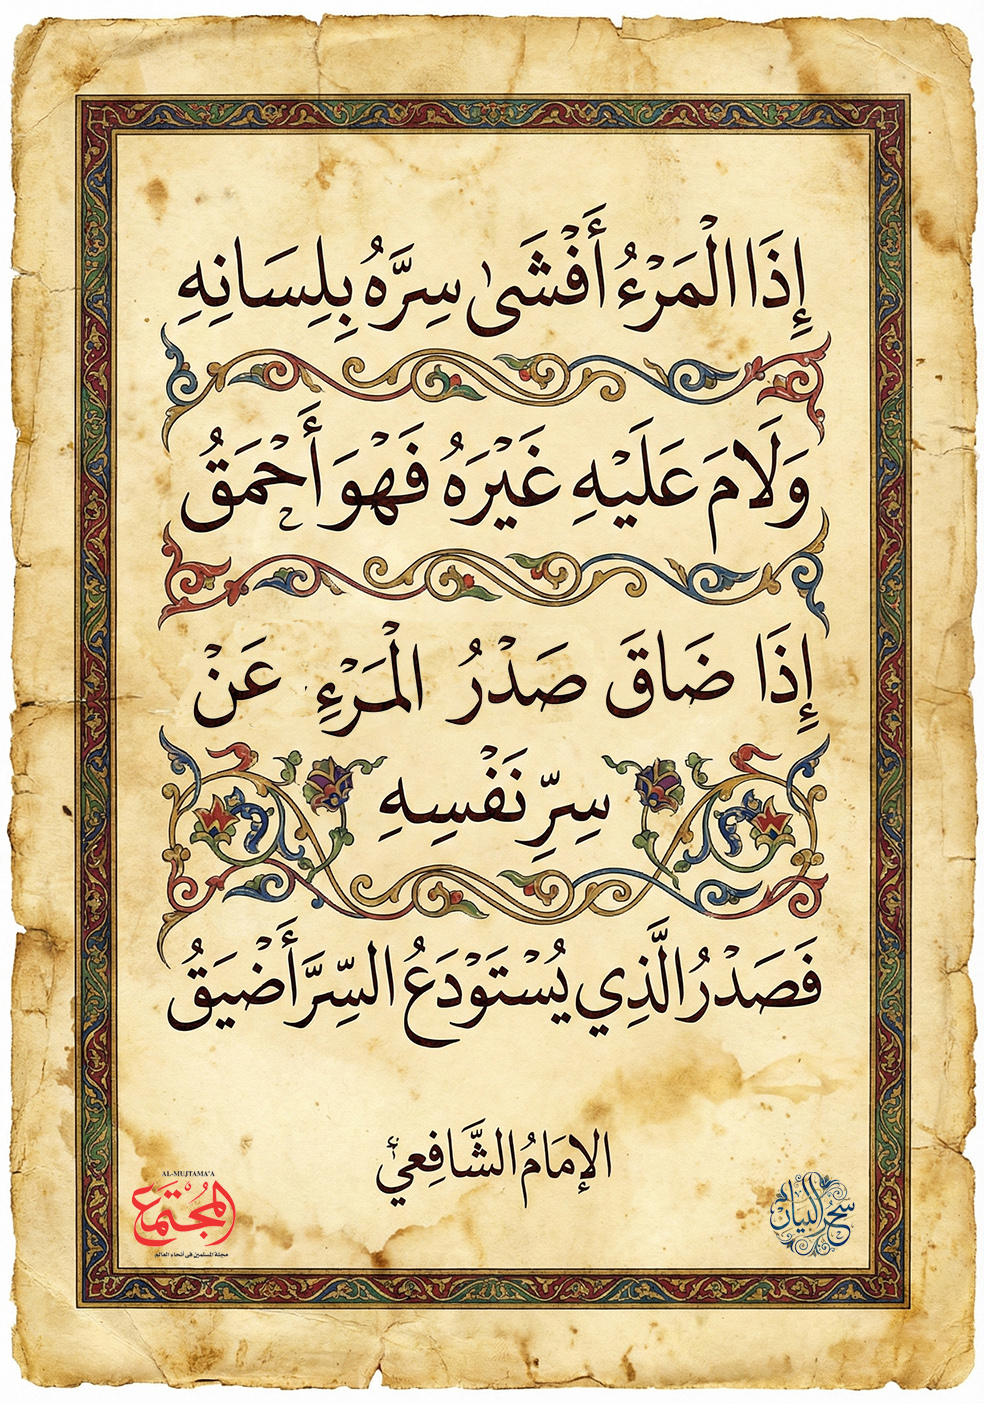 إِذَا الْمَرْءُ أَفْشَىٰ سِرَّهُ بِلِسَانِهِ
وَلَامَ عَلَيْهِ غَيْرَهُ فَهْوَ أَحْمَقُ
إِذَا ضَاقَ صَدْرُ الْمَرْءِ عَنْ
سِرِّ نَفْسِهِ
فَصَدْرُ الَّذِي يُسْتَوْدَعُ السِّرَّ أَضْيَقُ
الإِمَامُ الشَّافِعِيُّ
AL-MUJTAMA'A
المُجْتَمَع
مجلة المسلمين في أنحاء العالم
سحر البيان